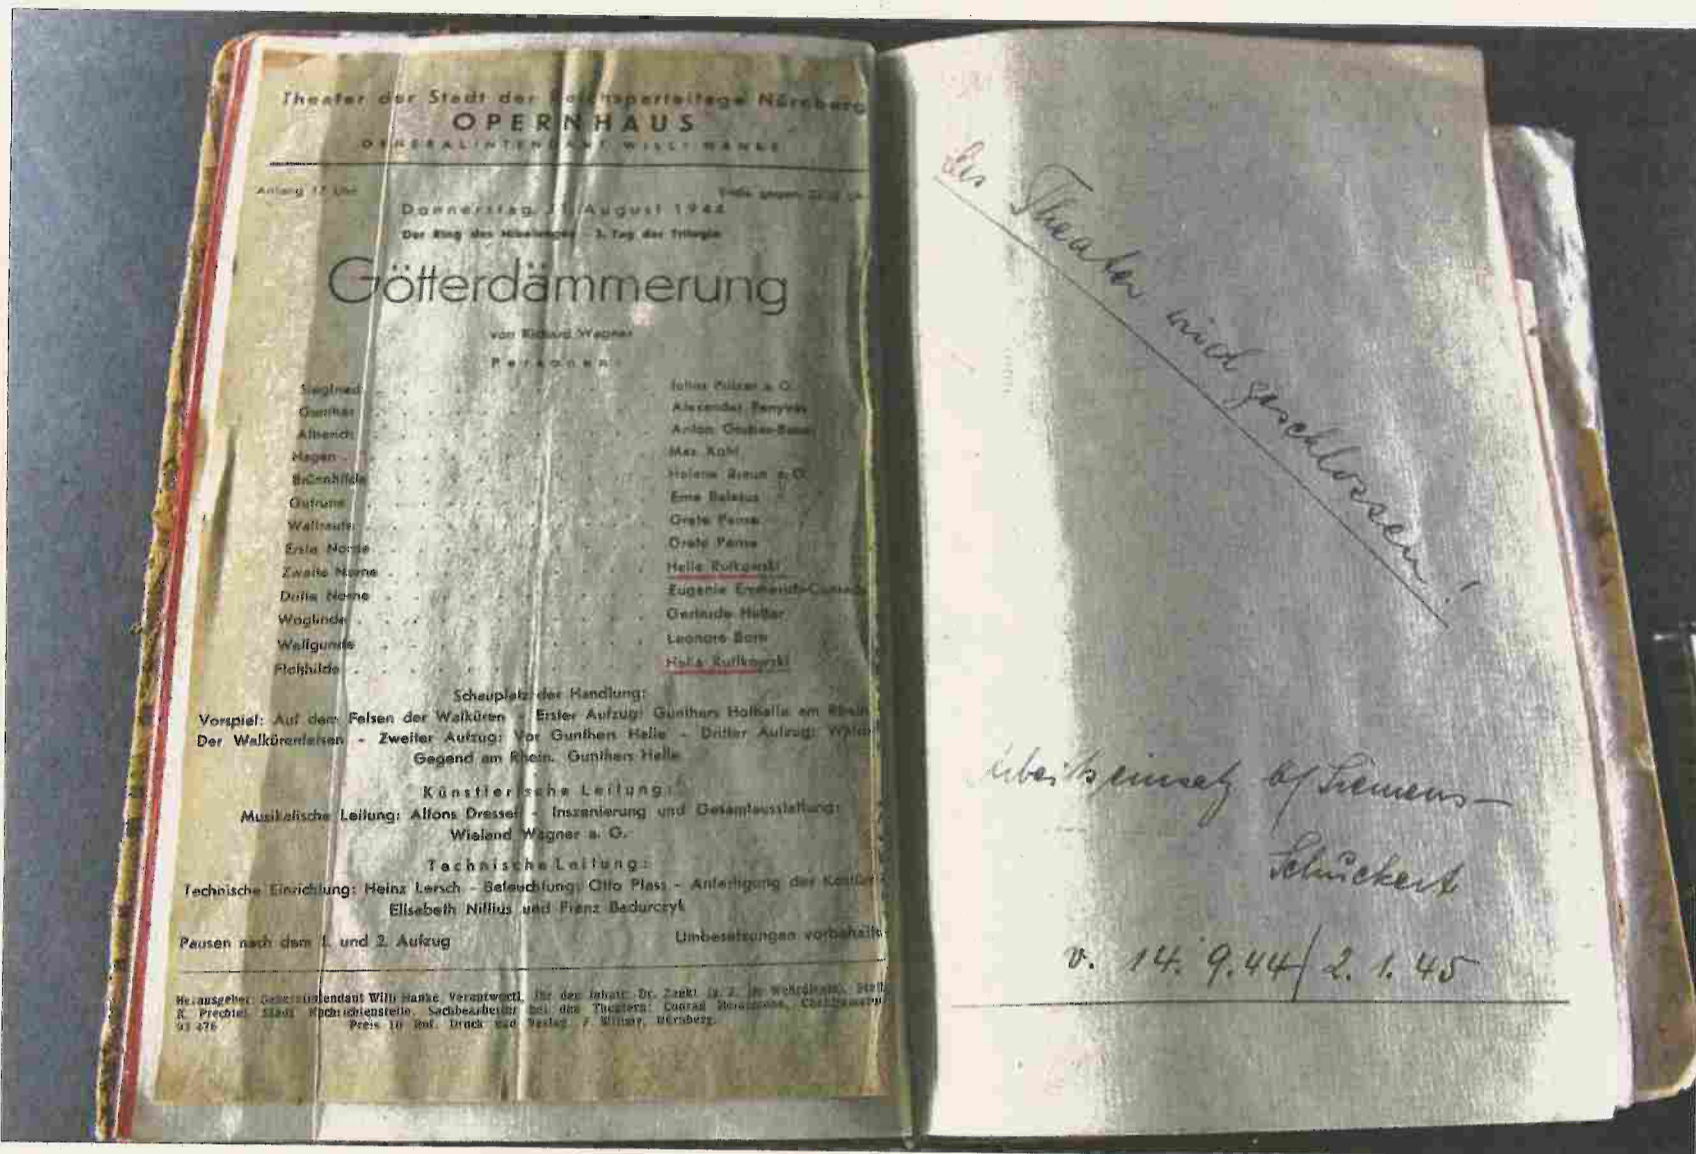 Theater der Stadt der Reichsparteitage Nürnberg
OPERNHAUS
GENERALINTENDANT WILLI HANKE
Anfang 17 Uhr
Ende gegen
Donnerstag, 31. August 1944
Der Ring des Nibelungen - 3. Tag der Trilogie
Götterdämmerung
von Richard Wagner
Personen:
Siegfried . . . . . . . . . . Julius Pölzer a. G.
Gunther . . . . . . . . . . Alexander Fenyves
Alberich . . . . . . . . . . Anton
Hagen . . . . . . . . . . Max Kohl
Brünnhilde . . . . . . . . . . Helene Braun a. G.
Gutrune . . . . . . . . . . Erna
Waltraute . . . . . . . . . . Grete Pense
Erste Norne . . . . . . . . . . Grete Pense
Zweite Norne . . . . . . . . . . Hella Rutkowski
Dritte Norne . . . . . . . . . . Eugenie
Woglinde . . . . . . . . . . Gertrude
Wellgunde . . . . . . . . . . Leonore
Floßhilde . . . . . . . . . . Hella Rutkowski
Schauplatz der Handlung:
Vorspiel: Auf dem Felsen der Walküren - Erster Aufzug: Gunthers Hofhalle am Rhein
Der Walkürenfelsen - Zweiter Aufzug: Vor Gunthers Halle - Dritter Aufzug: Wald
Gegend am Rhein. Gunthers Halle
Künstlerische Leitung:
Musikalische Leitung: Alfons Dressel - Inszenierung und Gesamtausstattung:
Wieland Wagner a. G.
Technische Leitung:
Technische Einrichtung: Heinz Lersch - Beleuchtung: Otto Plass - Anfertigung der
Elisabeth Nillius und Franz Badurczyk
Pausen nach dem 1. und 2. Aufzug
Umbesetzungen vorbehalten
Herausgeber: Generalintendant Willi Hanke. Verantwortl. für den Inhalt: Dr. (z. Z. im Wehrdienst),
K. Prechtel, Städt. Nachrichtenstelle. Sachbearbeiter bei den Theatern: Conrad
93 476 Preis 10 Rpf. Druck und Verlag: Nürnberg.
Das Theater wird geschlossen!
Arbeitseinsatz b/ Siemens-
Schuckert
v. 14. 9. 44/ 2. 1. 45